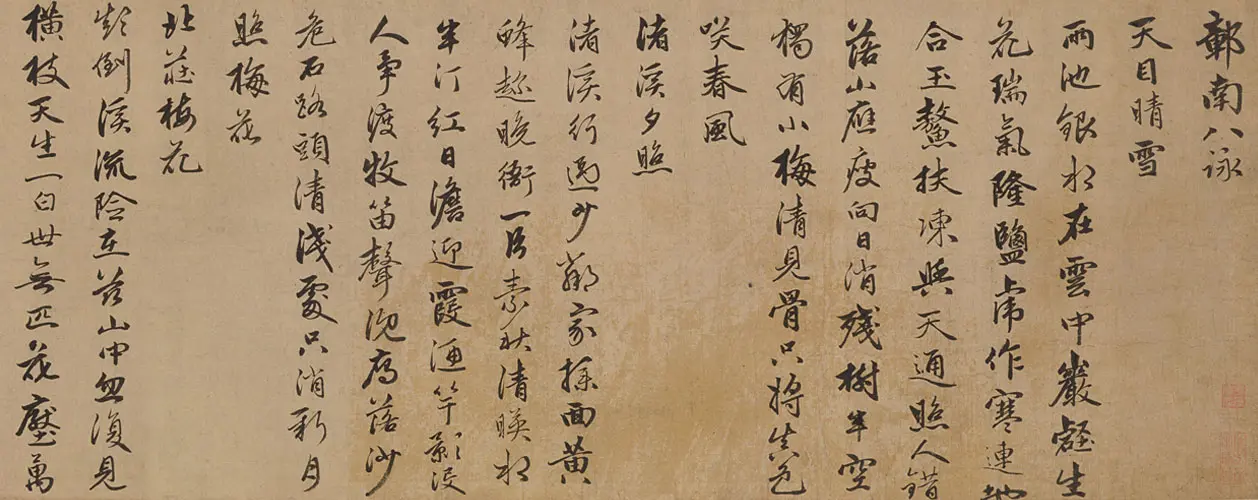 鄣南八詠
天目晴雪
兩池銀水在雲中巖壑生
花瑞氣隆鹽虎作寒連地
合玉鰲扶凍與天通照人錯
落山應瘦向日消殘樹半空
獨有小梅清見骨只將真色
咲春風
渚溪夕照
渚溪行過少鄰家採面黃
蜂趁晚衙一片素秋清暎水
半汀紅日澹迎霞酒竿影沒
人爭渡牧笛聲沉雁落沙
危石路頭清淺處只消新月
照梅花
北莊梅花
彭倒溪流險在茲山中忽復見
橫枝天生一白世無匹花壓萬